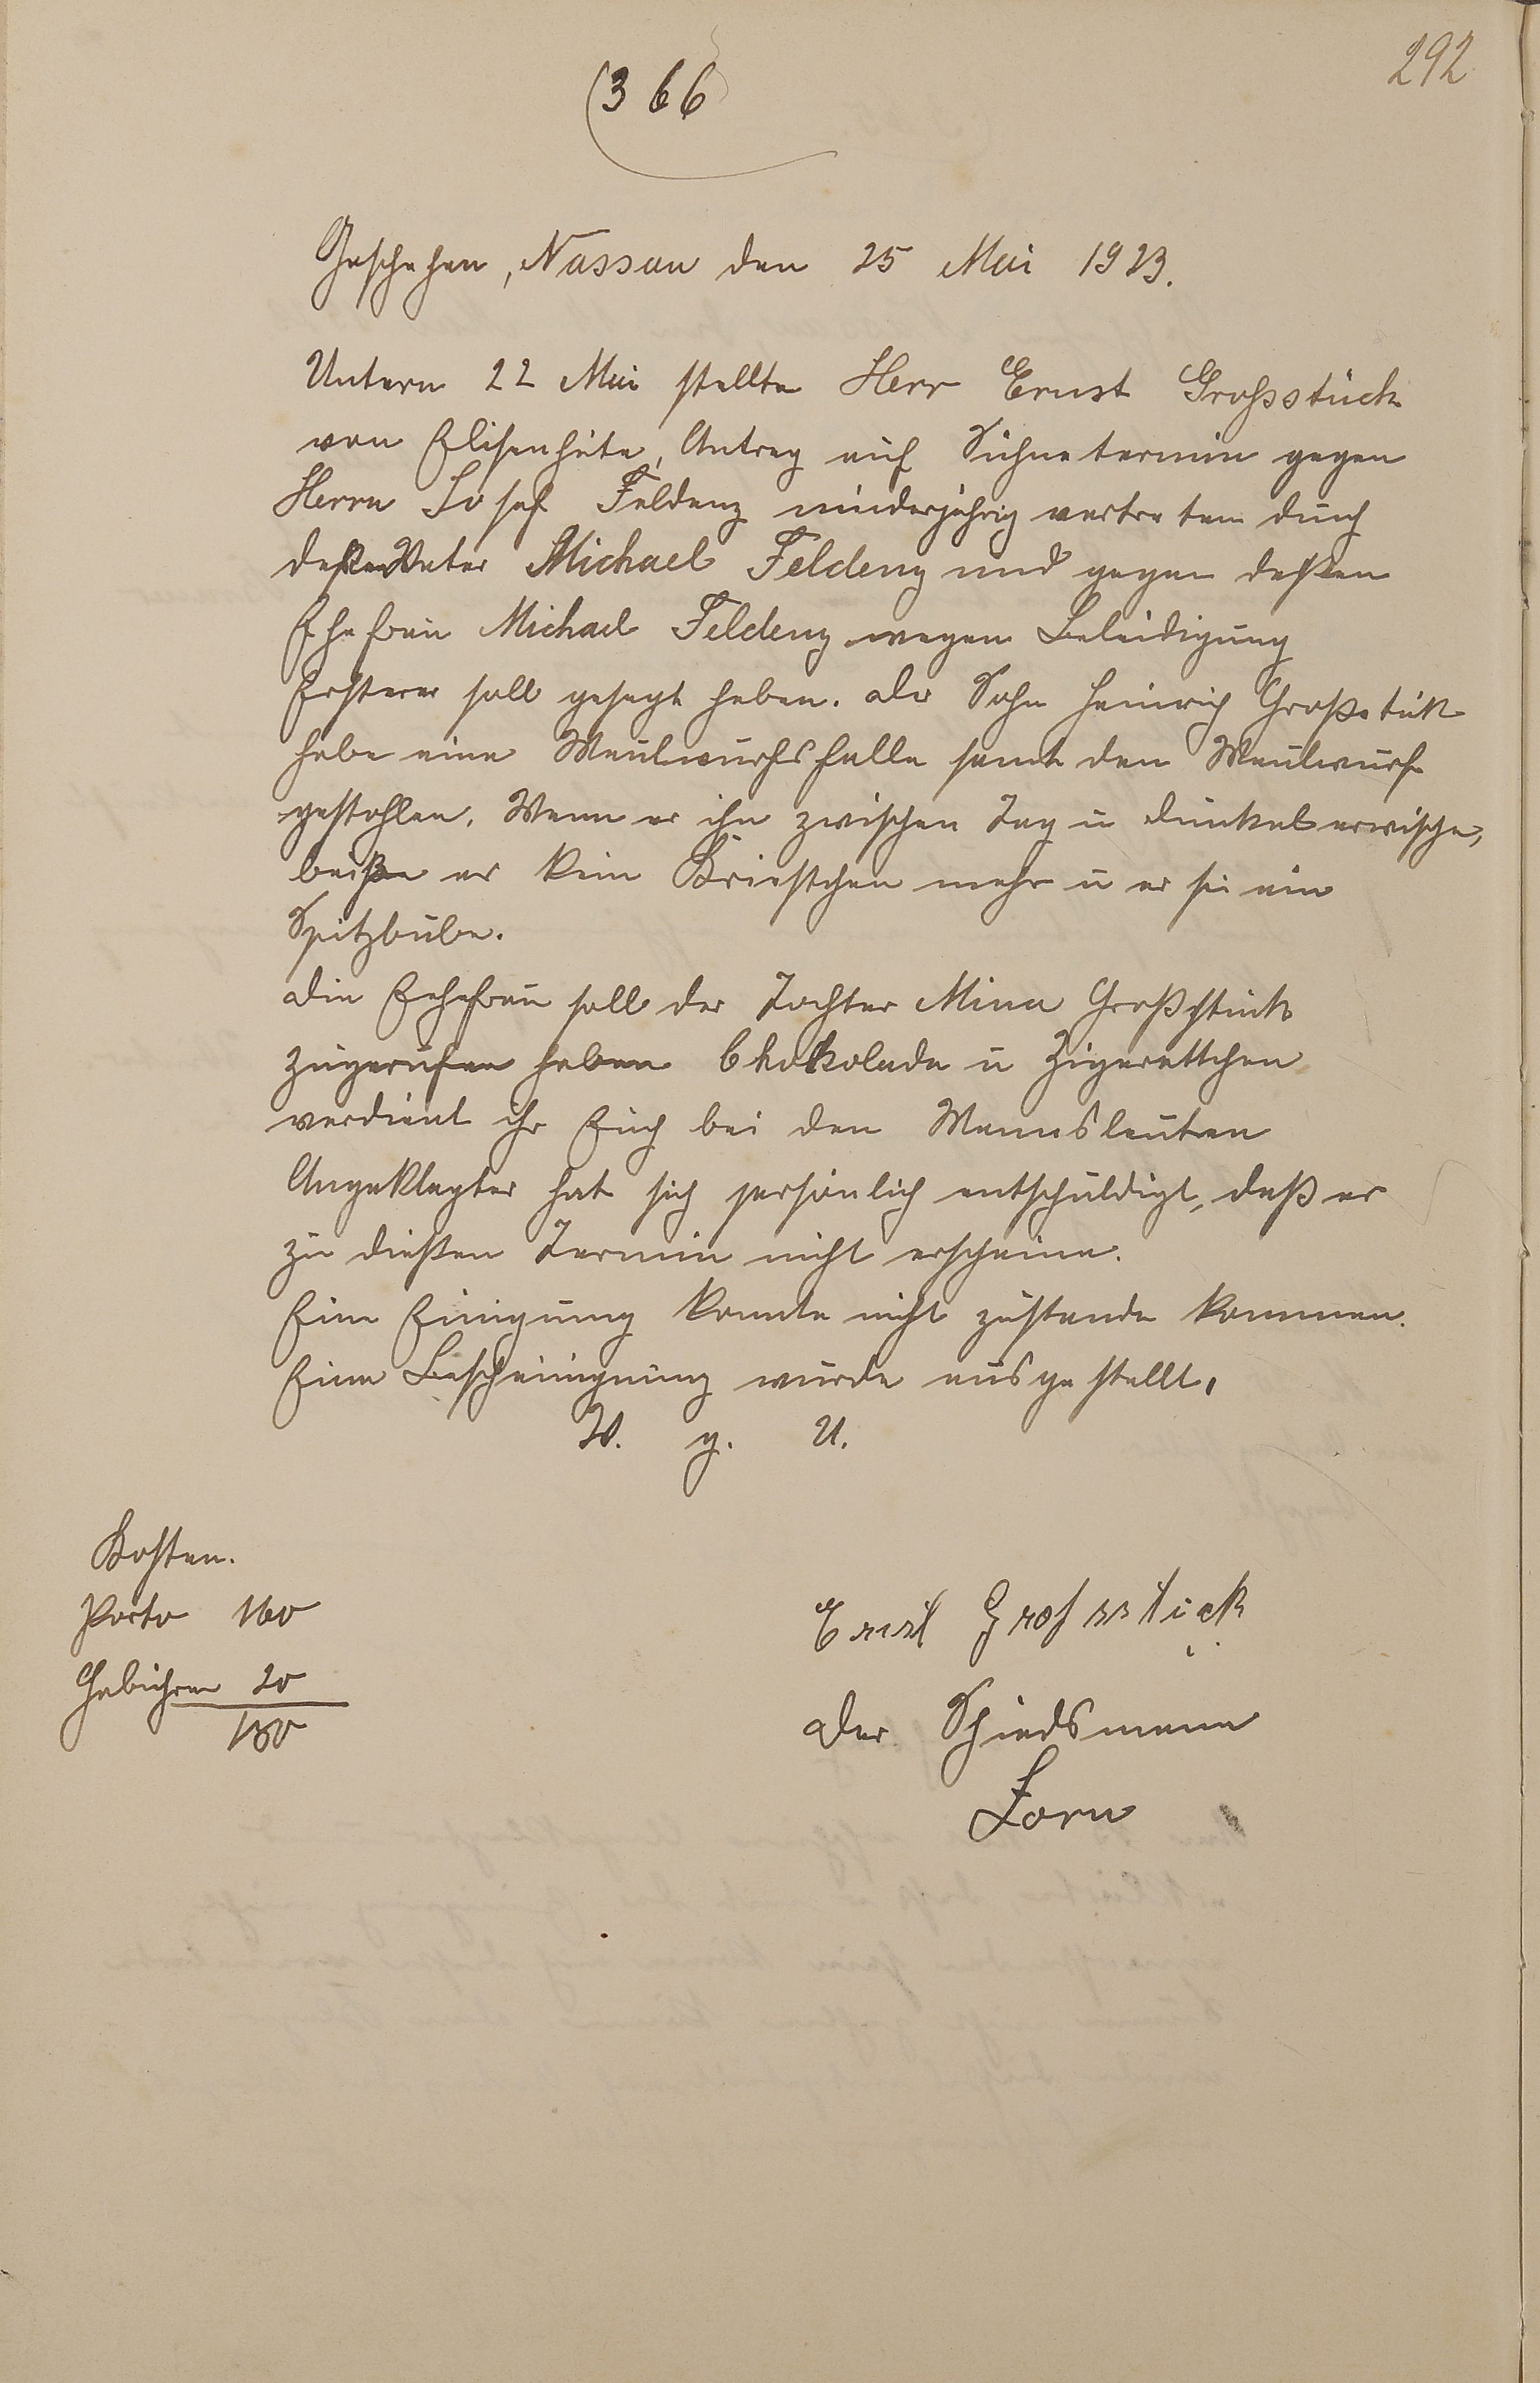 292
(366
Geschehen, Nassau den 25 Mai 1923.
Untern 22 Mai stellte Herr Ernst Grossstück
von Elisenhüte, Antrag auf Sühnetermin gegen
Herrn Josef Feldenz minderjährig vertreten durch
deßen Vater Michael Feldenz und gegen deßen
Ehefrau Michael Feldenz wegen Beleidigung
Ersterer soll gesagt haben. Der Sohn Heinrich Großstük
habe eine Maulwurfsfalle samt den Maulwurf
gestohlen. Wenn er ihn zwischen Tag u Dunkel erwische,
beiße er kein Kriestchen mehr u er sei ein
Spitzbube.
Die Ehefrau soll der Tochter Mina Großstück
zugerufen haben Chokolade u Zigarettchen
verdient ihr Euch bei den Mannsleuten
Angeklagter hat sich persönlich entschuldigt, daß er
zu dießen Termin nicht erscheine.
Eine Einigung konnte nicht zustande kommen.
Eine Bescheinigung wurde ausgestellt.
V. g. U.
Kosten.
Porto 160
Gebühren 20
180
Ernst Grossstück
Der Schiedsmann
Zorn